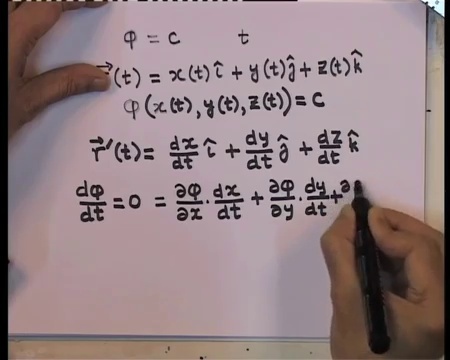 φ = c t
r⃗(t) = x(t) î + y(t) ĵ + z(t) k̂
φ(x(t), y(t), z(t)) = c
r⃗'(t) = dx/dt î + dy/dt ĵ + dz/dt k̂
dφ/dt = 0 = ∂φ/∂x · dx/dt + ∂φ/∂y · dy/dt + ∂